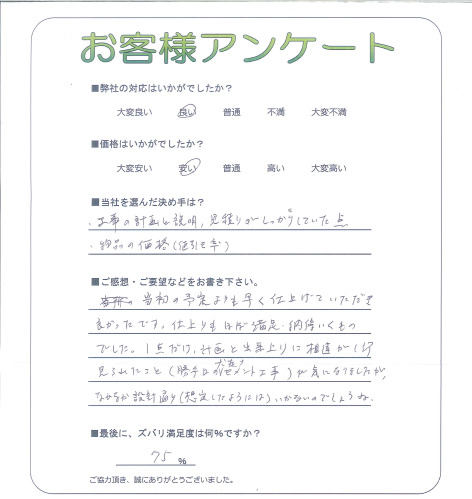 お客様アンケート
■弊社の対応はいかがでしたか？
大変良い 良い 普通 不満 大変不満
■価格はいかがでしたか？
大変安い 安い 普通 高い 大変高い
■当社を選んだ決め手は？
・工事の計画と説明，見積りがしっかりしていた点
・物品の価格（値引き率）
■ご感想・ご要望などをお書き下さい。
当初の予定よりも早く仕上げていただき
良かったです。仕上りもほぼ満足・納得いくもの
でした。1点だけ，計画と出来上りに相違が
見られたこと（勝手口のセメント工事）が気になりましたが，
なかなか設計通り（想定したようには）いかないのでしょうね。
■最後に、ズバリ満足度は何%ですか？
75 %
ご協力頂き、誠にありがとうございました。